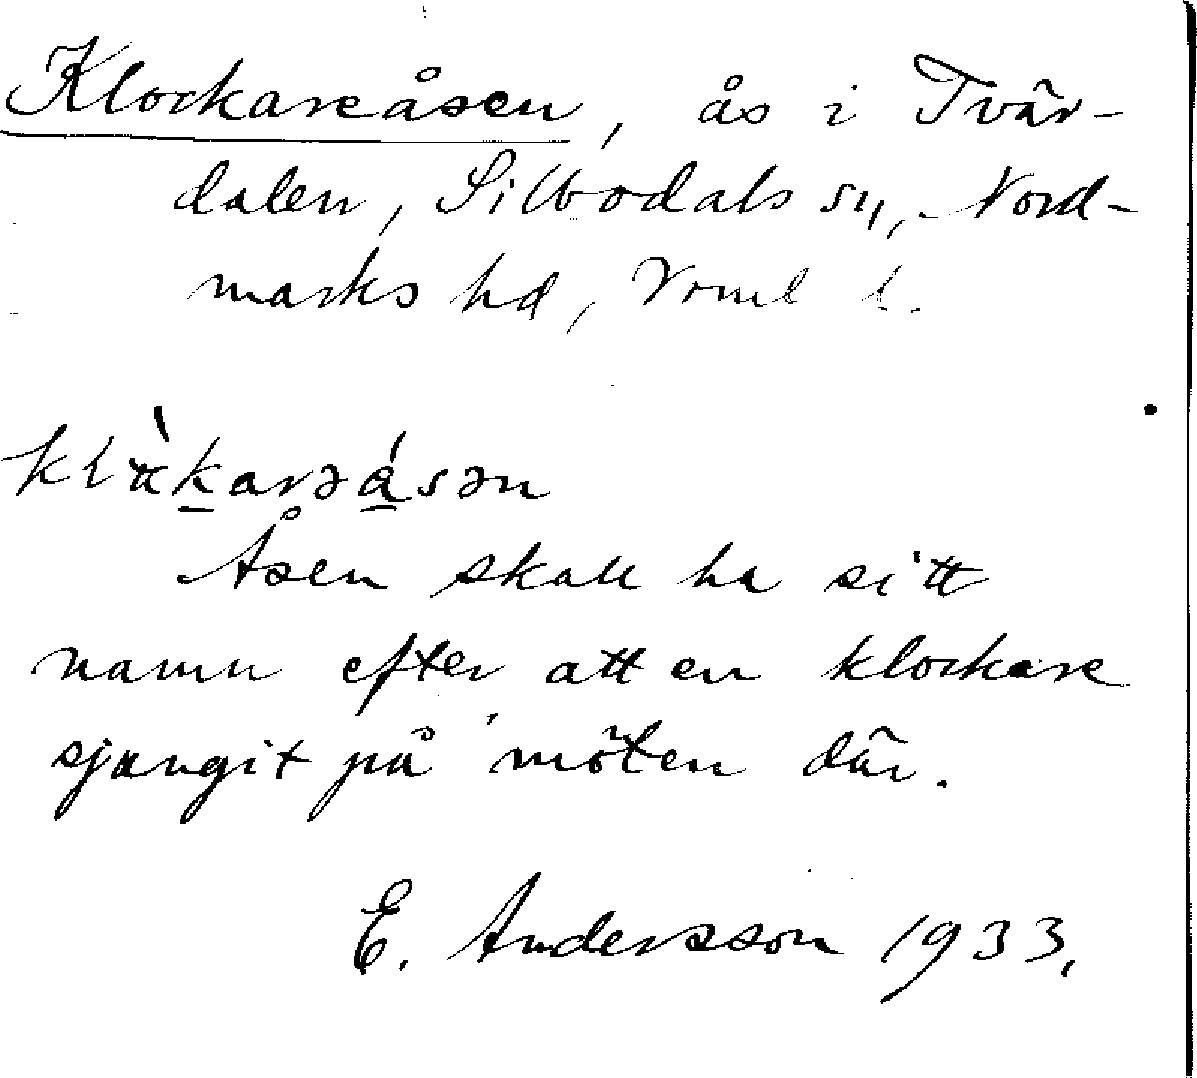 Klockareåsen, ås i Tvär-
dalen, Silbodals sn, Nord-
marks hd, Vrml l.
klàkarəásən
Åsen skall ha sitt
namn efter att en klockare
sjungit på möten där.
E. Andersson 1933.